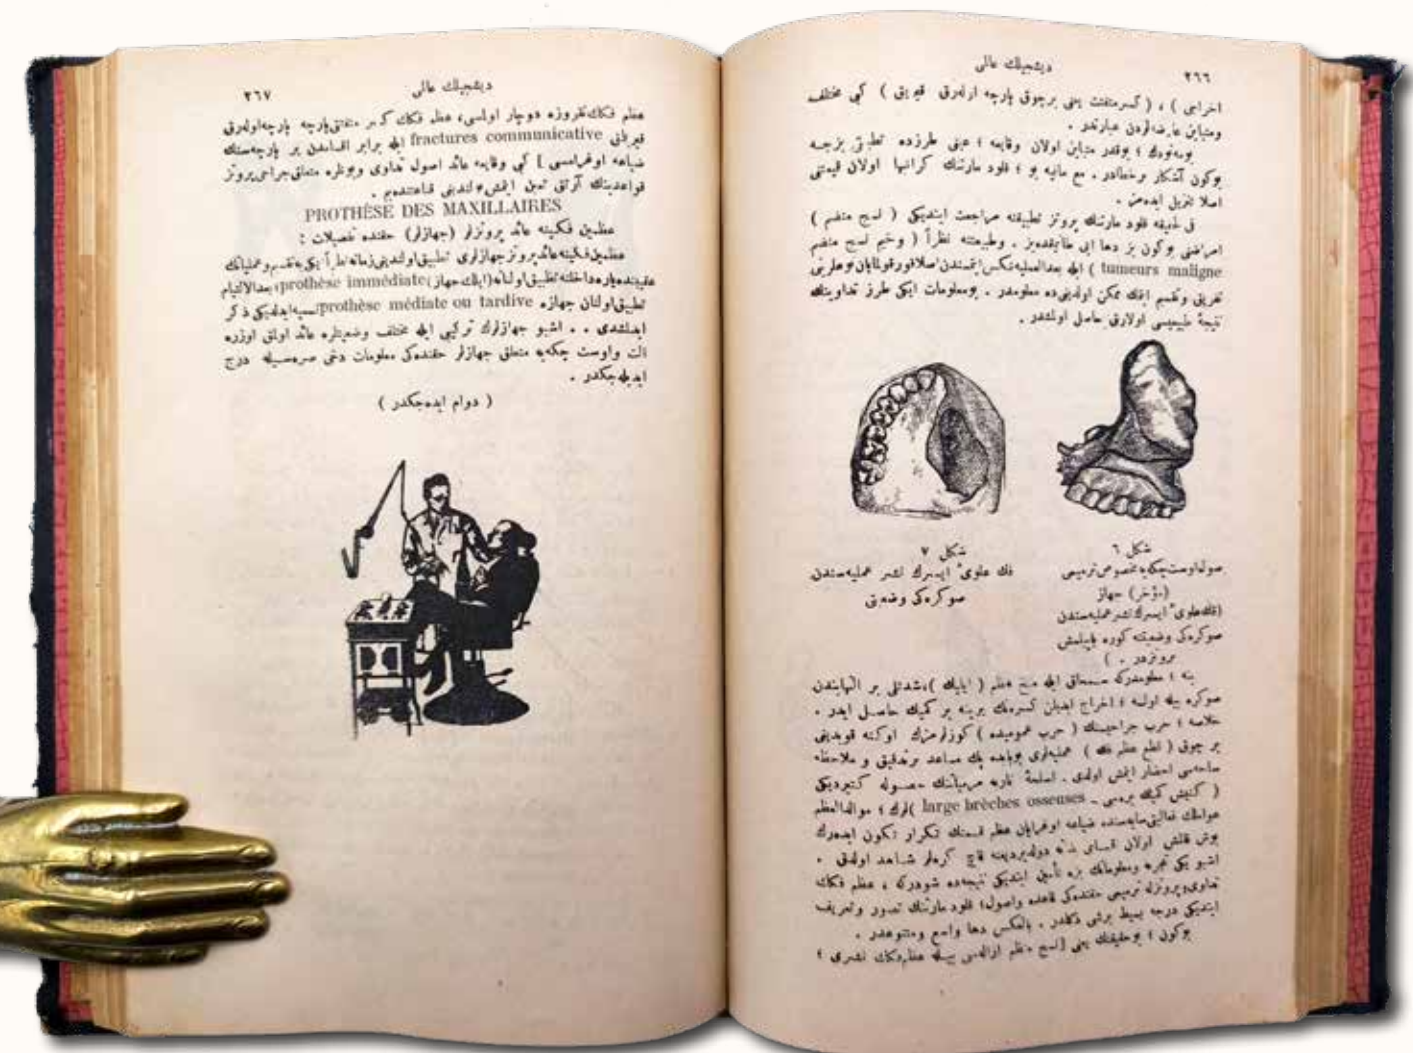 ٢٦٦
دیشجیلك عالی
اخراجی ) ، ( كسر متفتت یعنی برچوق پارچه‌ اوله‌رق قیریق ) كبی مختلف
ومتباین عارضه‌لردن عبارتدر .
بوكون آشكار وخطادر . مع مافیه بو ؛ قلود مارتنك كرانبها اولان قیمتنی
اصلا تنزیل ایده‌من .
فی الحقیقه قلود مارتنك پروتز تطبیقنه مراجعت ایتدیكی ( نسج منضم )
امراضنی بوكون بز دها ایی طانیقده‌یز . وطبیعتنه نظراً ( وخیم نسج منضم
tumeurs maligne ) ایله بعدالعملیه نكس ایتمه‌ندن اصلا قورقولمایان نوعلرینی
تفریق وتقسیم ایتمك ممكن اولدیغی‌ده معلومدر . بو معلومات ایكی طرز تداوینك
نتیجهٔ طبیعیسی اولارق حاصل اولمشدر .
شكل ٦
صول اوست چكه‌یه مخصوص ترمیمی
(مؤخر) جهاز
(فك علوی ایسرك نشر عملیه‌سندن
صوكره‌كی وضعیته كوره یاپیلمش
پروتزدر . )
شكل ٧
فك علوی ایسرك نشر عملیه‌سندن
صوكره‌كی وضعیتی
ینه ؛ معلومدركه سمحاق ایله مخ عظم ( ایلیك ) ، شدتلی بر التهابدن
صوكره بیله اولسه ؛ اخراج ایدیلن كسره‌نك یرینه بر كمیك حاصل ایدر .
خلاصه ؛ حرب جراحیسنك ( حرب عمومیده ) كوزلرمزك اوكنه قویدیغی
بر چوق ( قطع عظم فك ) عملیه‌لری بوبابده پك مساعد بر تدقیق و ملاحظه
ساحه‌سی احضار ایتمش اولدی . اسلحهٔ ناریه مرمیاتنك حصوله كتیردیكی
( كنیش كمیك بره‌سی ـ large brèches osseuses ) لرك ؛ مولدالعظم
عواملك فعالیتی سایه‌سنده ضیاعه اوغرایان عظم قسمنك تكرار تكون ایده‌رك
بوش قالمش اولان قسمی ینه دولدیردیغنه قاچ كره‌لر شاهد اولدق .
اشبو یكی تجربه ومعلوماتك بزه تأمین ایتدیكی نتیجه‌ده شودركه ، عظم فكك
تداوی وپروتزله ترمیمی حقنده‌كی قاعده واصول ؛ قلود مارتنك تصور وتعریف
ایتدیكی درجه بسیط برشی دكلدر . بالعكس دها واسع ومتنوعدر .
بوكون ؛ بوحقیقتك یعنی [نسج منضم ازاله‌سی سببیله عظم فكك نشری ؛
دیشجیلك عالی
٢٦٧
عظم فكك نقروزه دوچار اولمسی، عظم فكك كسر متفتتی پارچه پارچه اوله‌رق
قیریلانی fractures communicative ایله برابر اقسامدن بر پارچه‌سنك
ضیاعه اوغرامسی ] كبی وقایعه عائد اصول تداوی وبونلره متعلق جراحی پروتز
قواعدینك آرتق تعین ایتمش بولندیغی قناعتنده‌یم .
PROTHÈSE DES MAXILLAIRES
عظمین فكینه عائد پروتزلر (جهازلر) حقنده تفصیلات :
عظمین فكینه عائد پروتز جهازلری تطبیق اولندیغی زمانه نظراً ایكی‌یه تقسیم وعملیاتك
عقبنده یاره داخلنه تطبیق اولنانه (ایلك جهاز prothèse immédiate) ، بعدالالتیام
تطبیق اولنان جهازه prothèse médiate ou tardive تسمیه ایدلدیكی ذكر
ایدلشدی . . اشبو جهازلرك تركیبی ایله مختلف وضعیتلره عائد اولمق اوزره
الت واوست چكه‌یه متعلق جهازلر حقنده‌كی معلومات دخی صره‌سیله درج
ایدیله‌جكدر .
( دوام ایده‌جكدر )